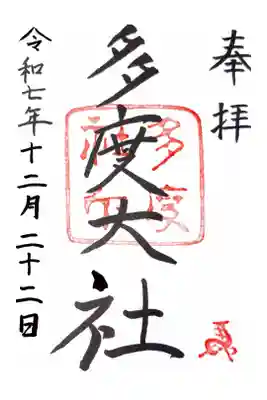 奉拝
多度大社
令和七年十二月二十二日